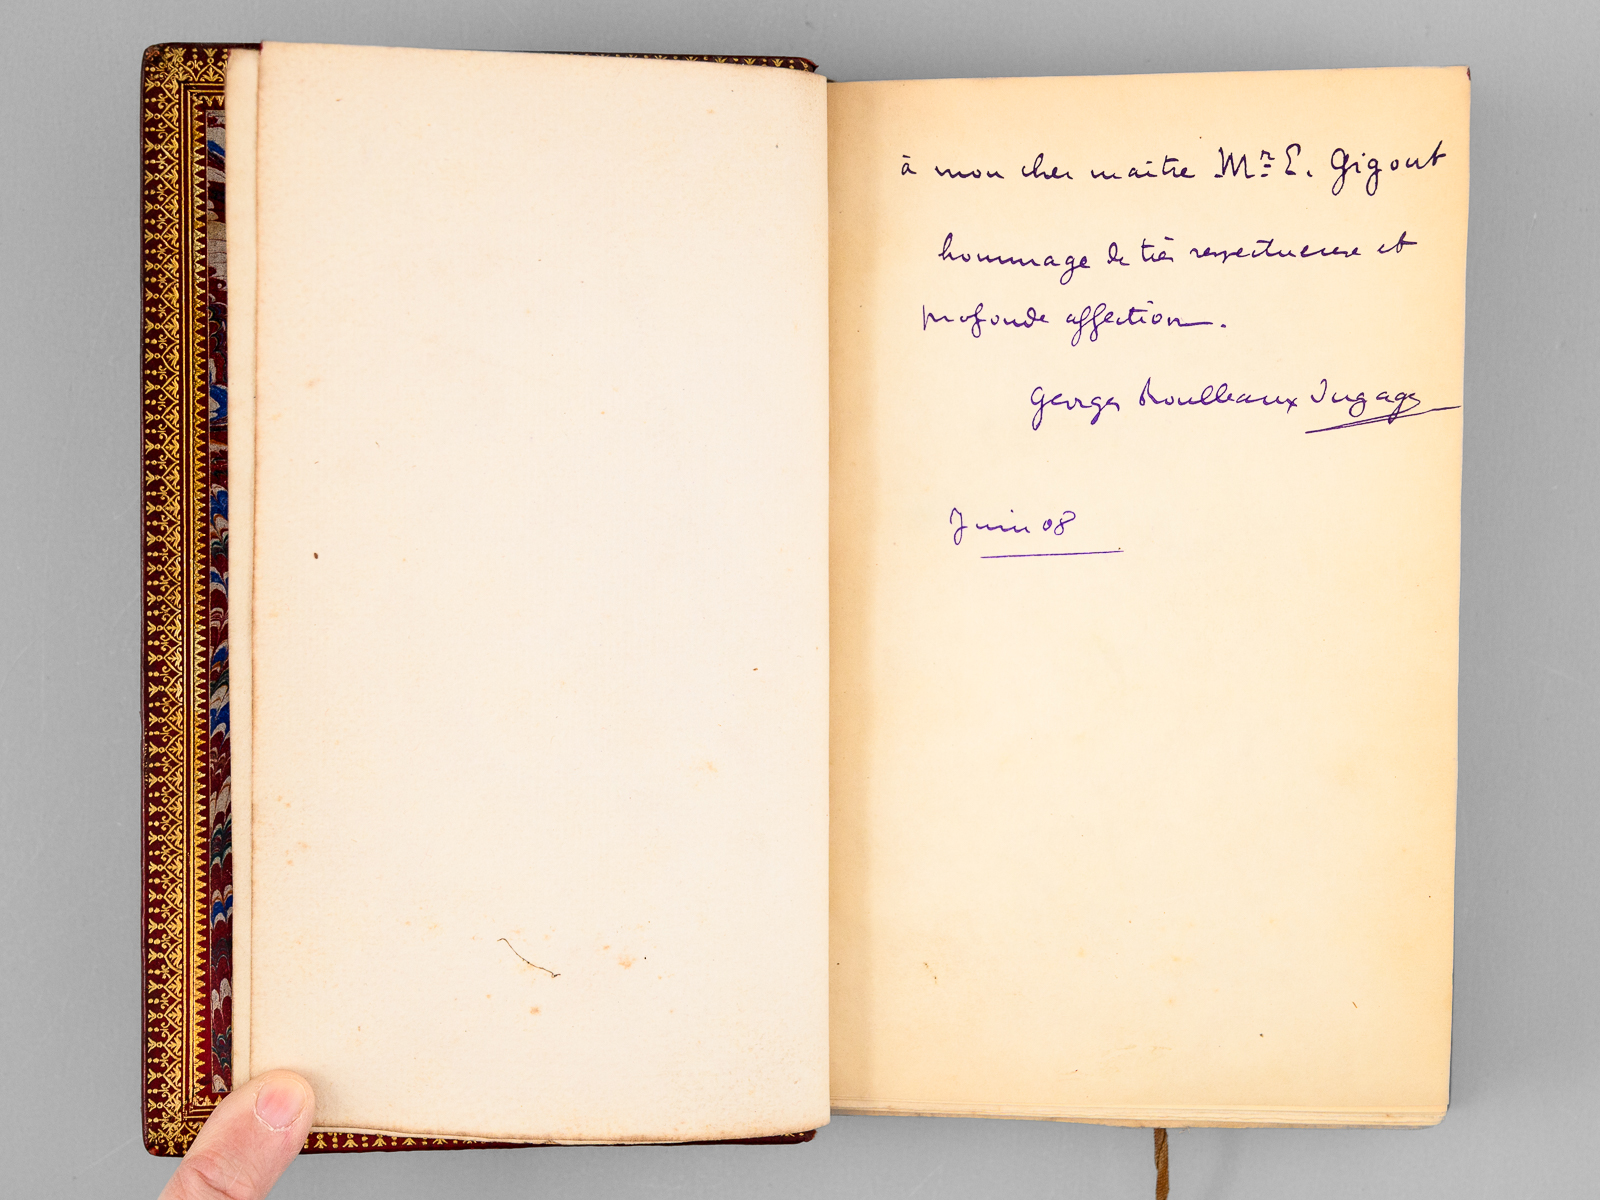 à mon cher maitre Mr E. Gigout
hommage de très respectueuse et
profonde affection.
Georges Roulleaux Dugage
Juin 08